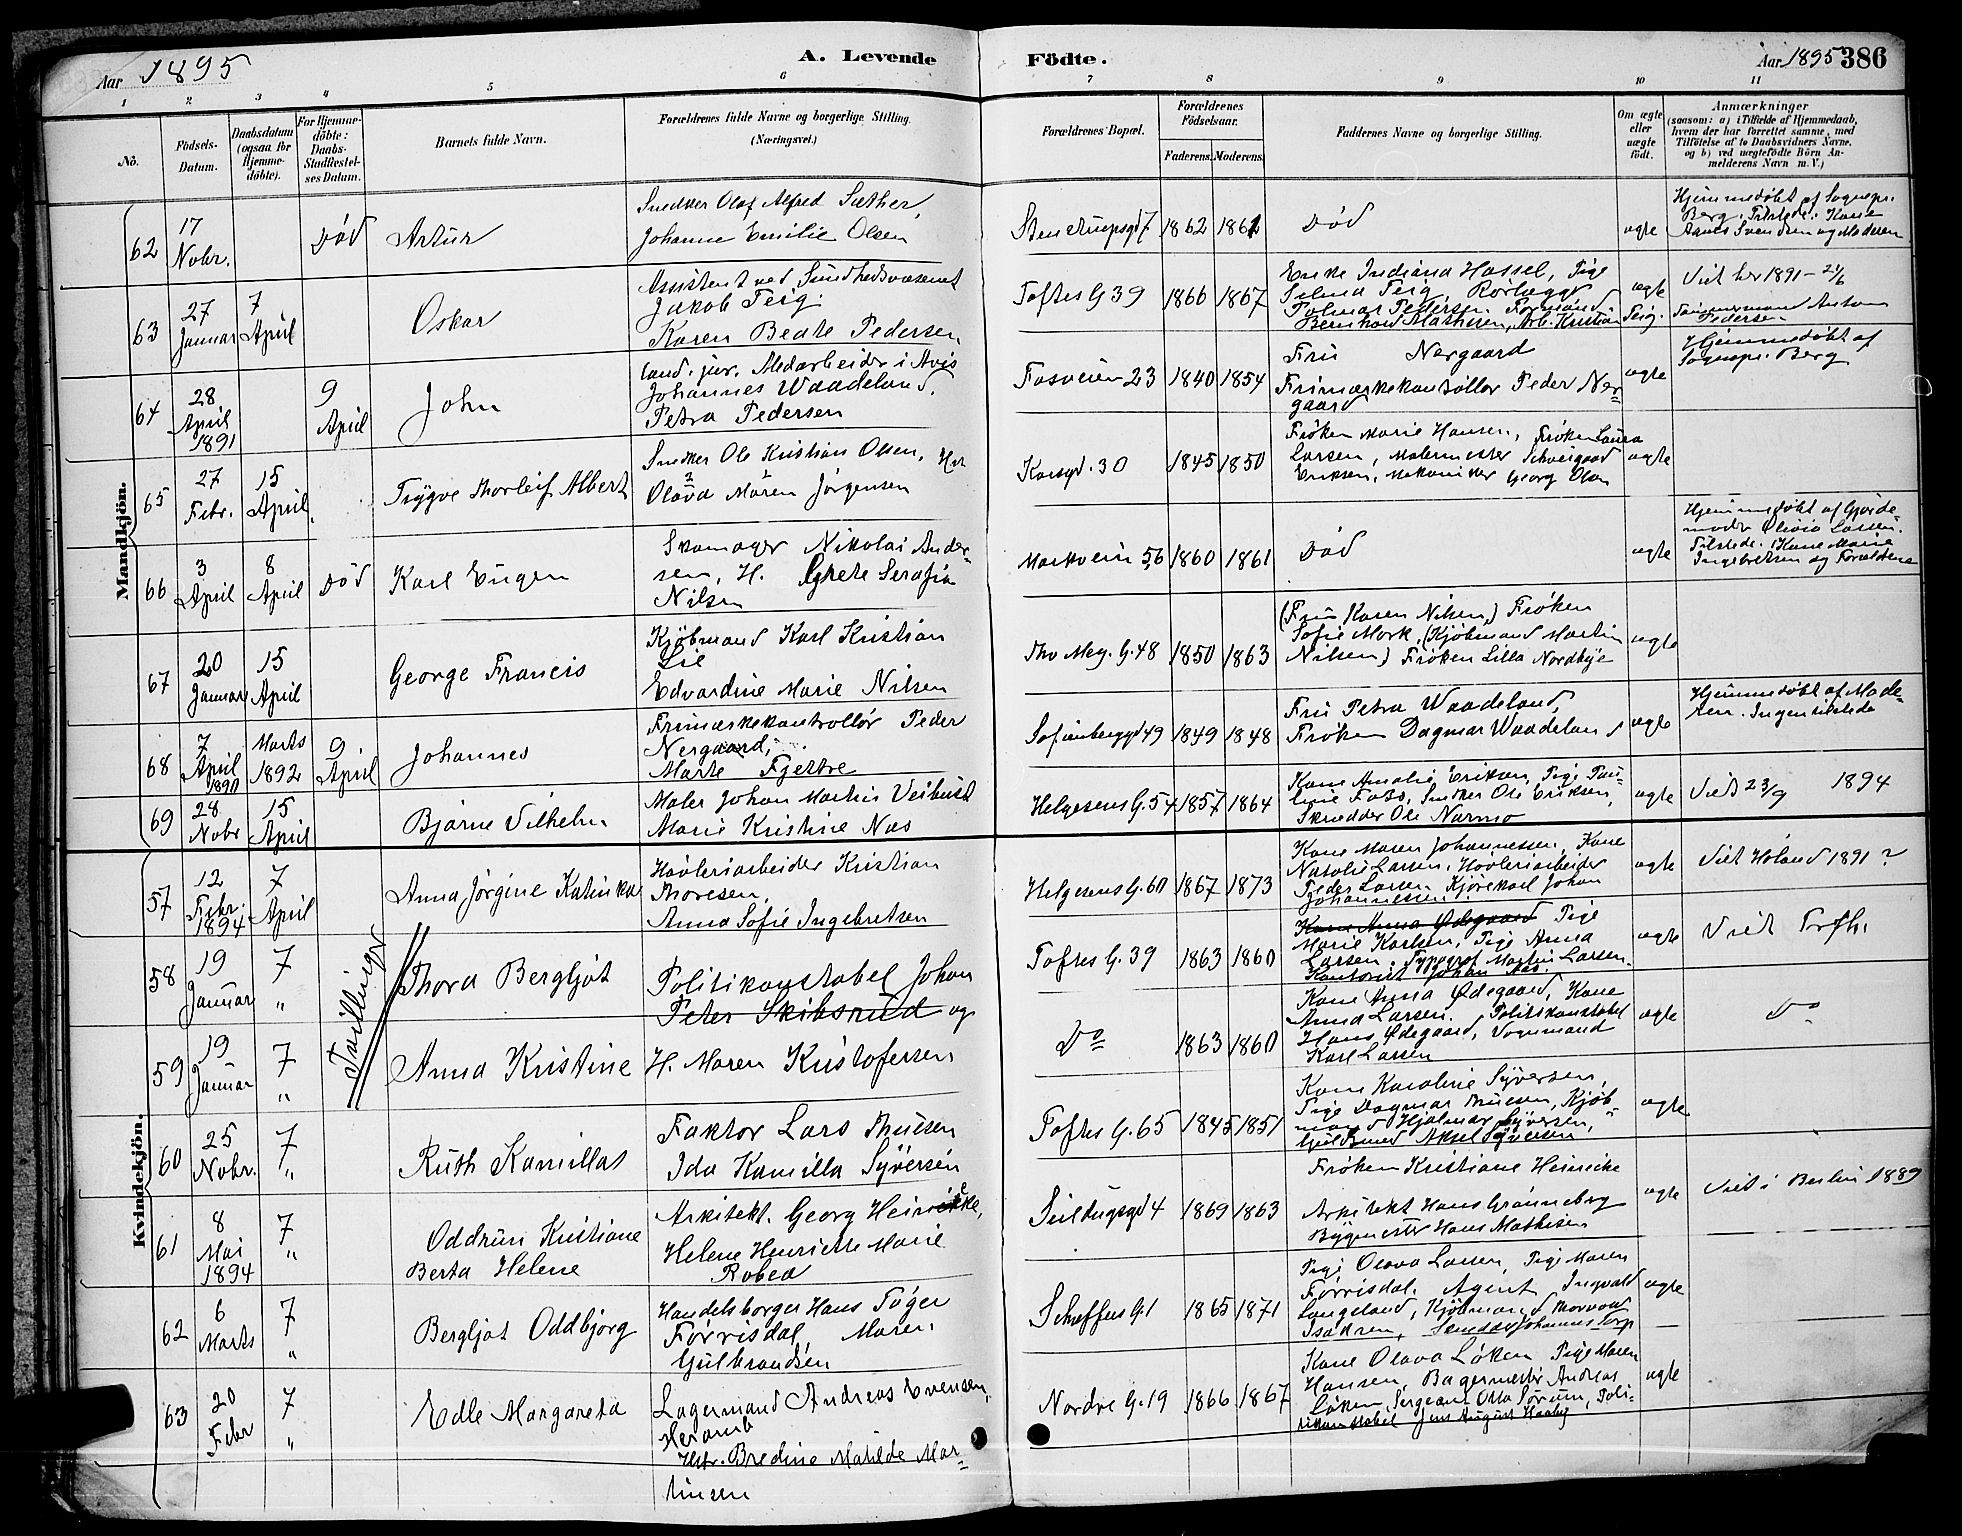 Aar 1895
A. Levende
Födte.
Aar 1895 386
1 2 3 4 5 6 7 8 9 10 11
No.
Födsels-Datum.
Daabsdatum (ogsaa for Hjemme-döbte).
For Hjemme-döbte: Daabs-Stadfæstel-ses Datum.
Barnets fulde Navn.
Forældrenes fulde Navne og borgerlige Stilling. (Næringsvei.)
Forældrenes Bopæl.
Forældrenes Födselsaar.
Faderens. Moderens.
Faddernes Navne og borgerlige Stilling.
Om ægte eller uægte födt.
Anmærkninger
(saasom: a) i Tilfælde af Hjemmedaab,
hvem der har forrettet samme, med
Tilföielse af to Daabsvidners Navne,
og b) ved uægtefödte Börn An-
melderens Navn m. V.)
Mandkjön.
62
17 Nobr.
Död
Artur
Snedker Olaf Alfred Sæther,
Johanne Emilie Olsen
Stenstrupsgd 7
1862 1861
Död
ægte
Hjemmedøbt af Sognepr.
Berg. Tilstede: Kone
Agnes Svendsen og Moderen
63
27 Januar
7 April
Oskar
Assistent ved Sundhedsvæsenet
Jakob Teig
Karen Beate Pedersen
Toftes G 39
1866 1867
Enke Indiana Hassel, Pige
Selma Teig, Rörlægger
Folmar Pedersen. Formand
Bernhard Mathisen, Arb. Kristian Teig.
ægte
Viet her 1891 - 21/6
Tömmermand Anton
Pedersen
64
28 April 1891
9 April
John
cand. jur. Medarbeider i Avis
Johannes Waadeland,
Petra Pedersen
Fosveien 23
1840 1854
Fru Nergaard
Frimærkekontollør Peder Ner=
gaard
ægte
Hjemmedøbt af
Sognepr. Berg
65
27 Febr.
15 April
Trygve Thorleif Albert
Snedker Ole Kristian Olsen, H
Olava Maren Jörgensen
Korsgd. 30
1845 1850
Frøken Marie Hansen, Frøken Laura
Larsen, Malermester Schweigaard
Eriksen, Mekaniker Georg Olsen
ægte
66
3 April
8 April
Död
Karl Eugen
Skomager Nikolai Ander-
sen, H. Grete Serafia
Nilsen
Markveien 56
1860 1861
Död
ægte
Hjemmedøbt af Gjorde-
moder Olivia Larsen.
Tilstede: Kone Marie
Ingebretsen og Forældrene
67
20 Januar
15 April
George Francis
Kjöbmand Karl Kristian
Lie
Edvardine Marie Nilsen
Thv Mey. G. 48
1850 1863
(Fru Karen Nilsen,) Frøken
Sofie Mork, (Kjöbmand Martin
Nilsen) Frøken Lilla Nordbye
ægte
68
7 April 1890
Marts 1892
9 April
Johannes
Frimærkekontrollør Peder
Nergaard,
Marte Fjestre
Sofienberggd 49
1849 1848
Fru Petra Waadeland,
Frøken Dagmar Waadeland
ægte
Hjemmedøbt af Mode-
ren. Ingen tilstede
69
28 Nobr
15 April
Bjarne Vilhelm
Maler Johan Martin Veibust
Marie Kristine Næs
Helgesens G. 54
1857 1864
Kone Amalie Eriksen, Pige Pau-
line Foss, Snedker Ole Eriksen,
Skrædder Ole Narmo
ægte
Viet 23/9 1894
Kvindekjön.
57
12 Febr. 1894
7 April
Anna Jörgine Katinka
Høvleriarbeider Kristian
Thoresen,
Anna Sofie Ingebretsen
Helgesens G. 60
1867 1873
Kone Maren Johannessen, Kone
Natalie Larsen, Høvleriarbeider
Peder Larsen Kjörekarl Johan
Johannessen
ægte
Viet Höland 1891 ?
Tvillinger
58
19 Januar
7 "
Thora Bergljot
Politikonstabel Johan
Peter Skibsrud og
Toftes G. 39
1863 1860
Kone Anna Ødegaard Pige
Marie Karlsen, Pige Anna
Larsen. Typograf Martin Larsen.
Kontorist Johan Aas.
ægte
Viet Trefh.
59
19 Januar
7 "
Anna Kristine
H. Maren Kristofersen
Do
1863 1860
Kone Anna Ødegaard, Kone
Anna Larsen. Politikonstabel
Hans Ødegaard, Vognmand
Karl Larsen
ægte
Do
60
25 Nobr.
7 "
Ruth Kamilla
Faktor Lars Thuesen
Ida Kamilla Syversen
Toftes G. 65
1845 1851
Kone Karoline Syversen,
Pige Dagmar Thuesen, Kjöb-
mand Hjalmar Syversen,
Guldsmed Aksel Syversen
ægte
61
8 Mai 1894
7 "
Oddrun Kristiane
Berta Helene
Arkitekt. Georg Heinricke,
Helene Henriette Marie
Robea
Seildugsgd 4
1869 1863
Frøken Kristiane Heinicke
Arkitekt Hans Grönneberg
Bygmester Hans Mathisen
ægte
Viet i Berlin 1889
62
6 Marts
7 "
Bergljot Oddbjørg
Handelsborger Hans Töger
Førrisdal, Maren
Gulbrandsen
Schleffers G. 1
1865 1871
Pige Olava Larsen, Pige Maren
Førrisdal. Agent Ingvald
Langeland, Kjöbmand Thorvald
Isaksen, Johannes Torp
ægte
63
20 Febr
7 "
Edle Margareta
Lagermand Andreas Evensen,
Heramb
Htr. Bredine Matilde Mar=
tinsen
Nordre G. 19
1866 1867
Kone Olava Löken Pige Maren
Hansen, Bagermester Andreas
Löken, Sergeant Otto Sörum, Poli-
tikonstabel Jens August Haaby
ægte